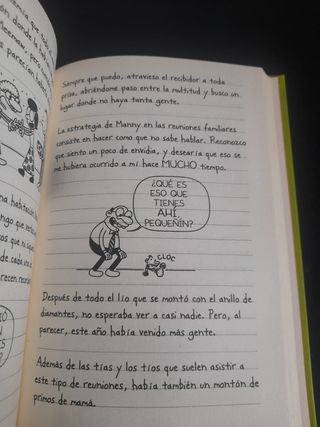 Siempre que puedo, atravieso el recibidor a toda
prisa, abriéndome paso entre la multitud y busco un
lugar donde no haya tanta gente.
La estrategia de Manny en las reuniones familiares
consiste en hacer como que no sabe hablar. Reconozco
que siento un poco de envidia, y desearía que eso se
me hubiera ocurrido a mí hace MUCHO tiempo.
¿QUÉ ES
ESO QUE
TIENES
AHÍ,
PEQUEÑÍN?
CLOC
Después de todo el lío que se montó con el anillo de
diamantes, no esperaba ver a casi nadie. Pero, al
parecer, este año había venido más gente.
Además de las tías y los tíos que suelen asistir a
este tipo de reuniones, había también un montón de
primos de mamá.